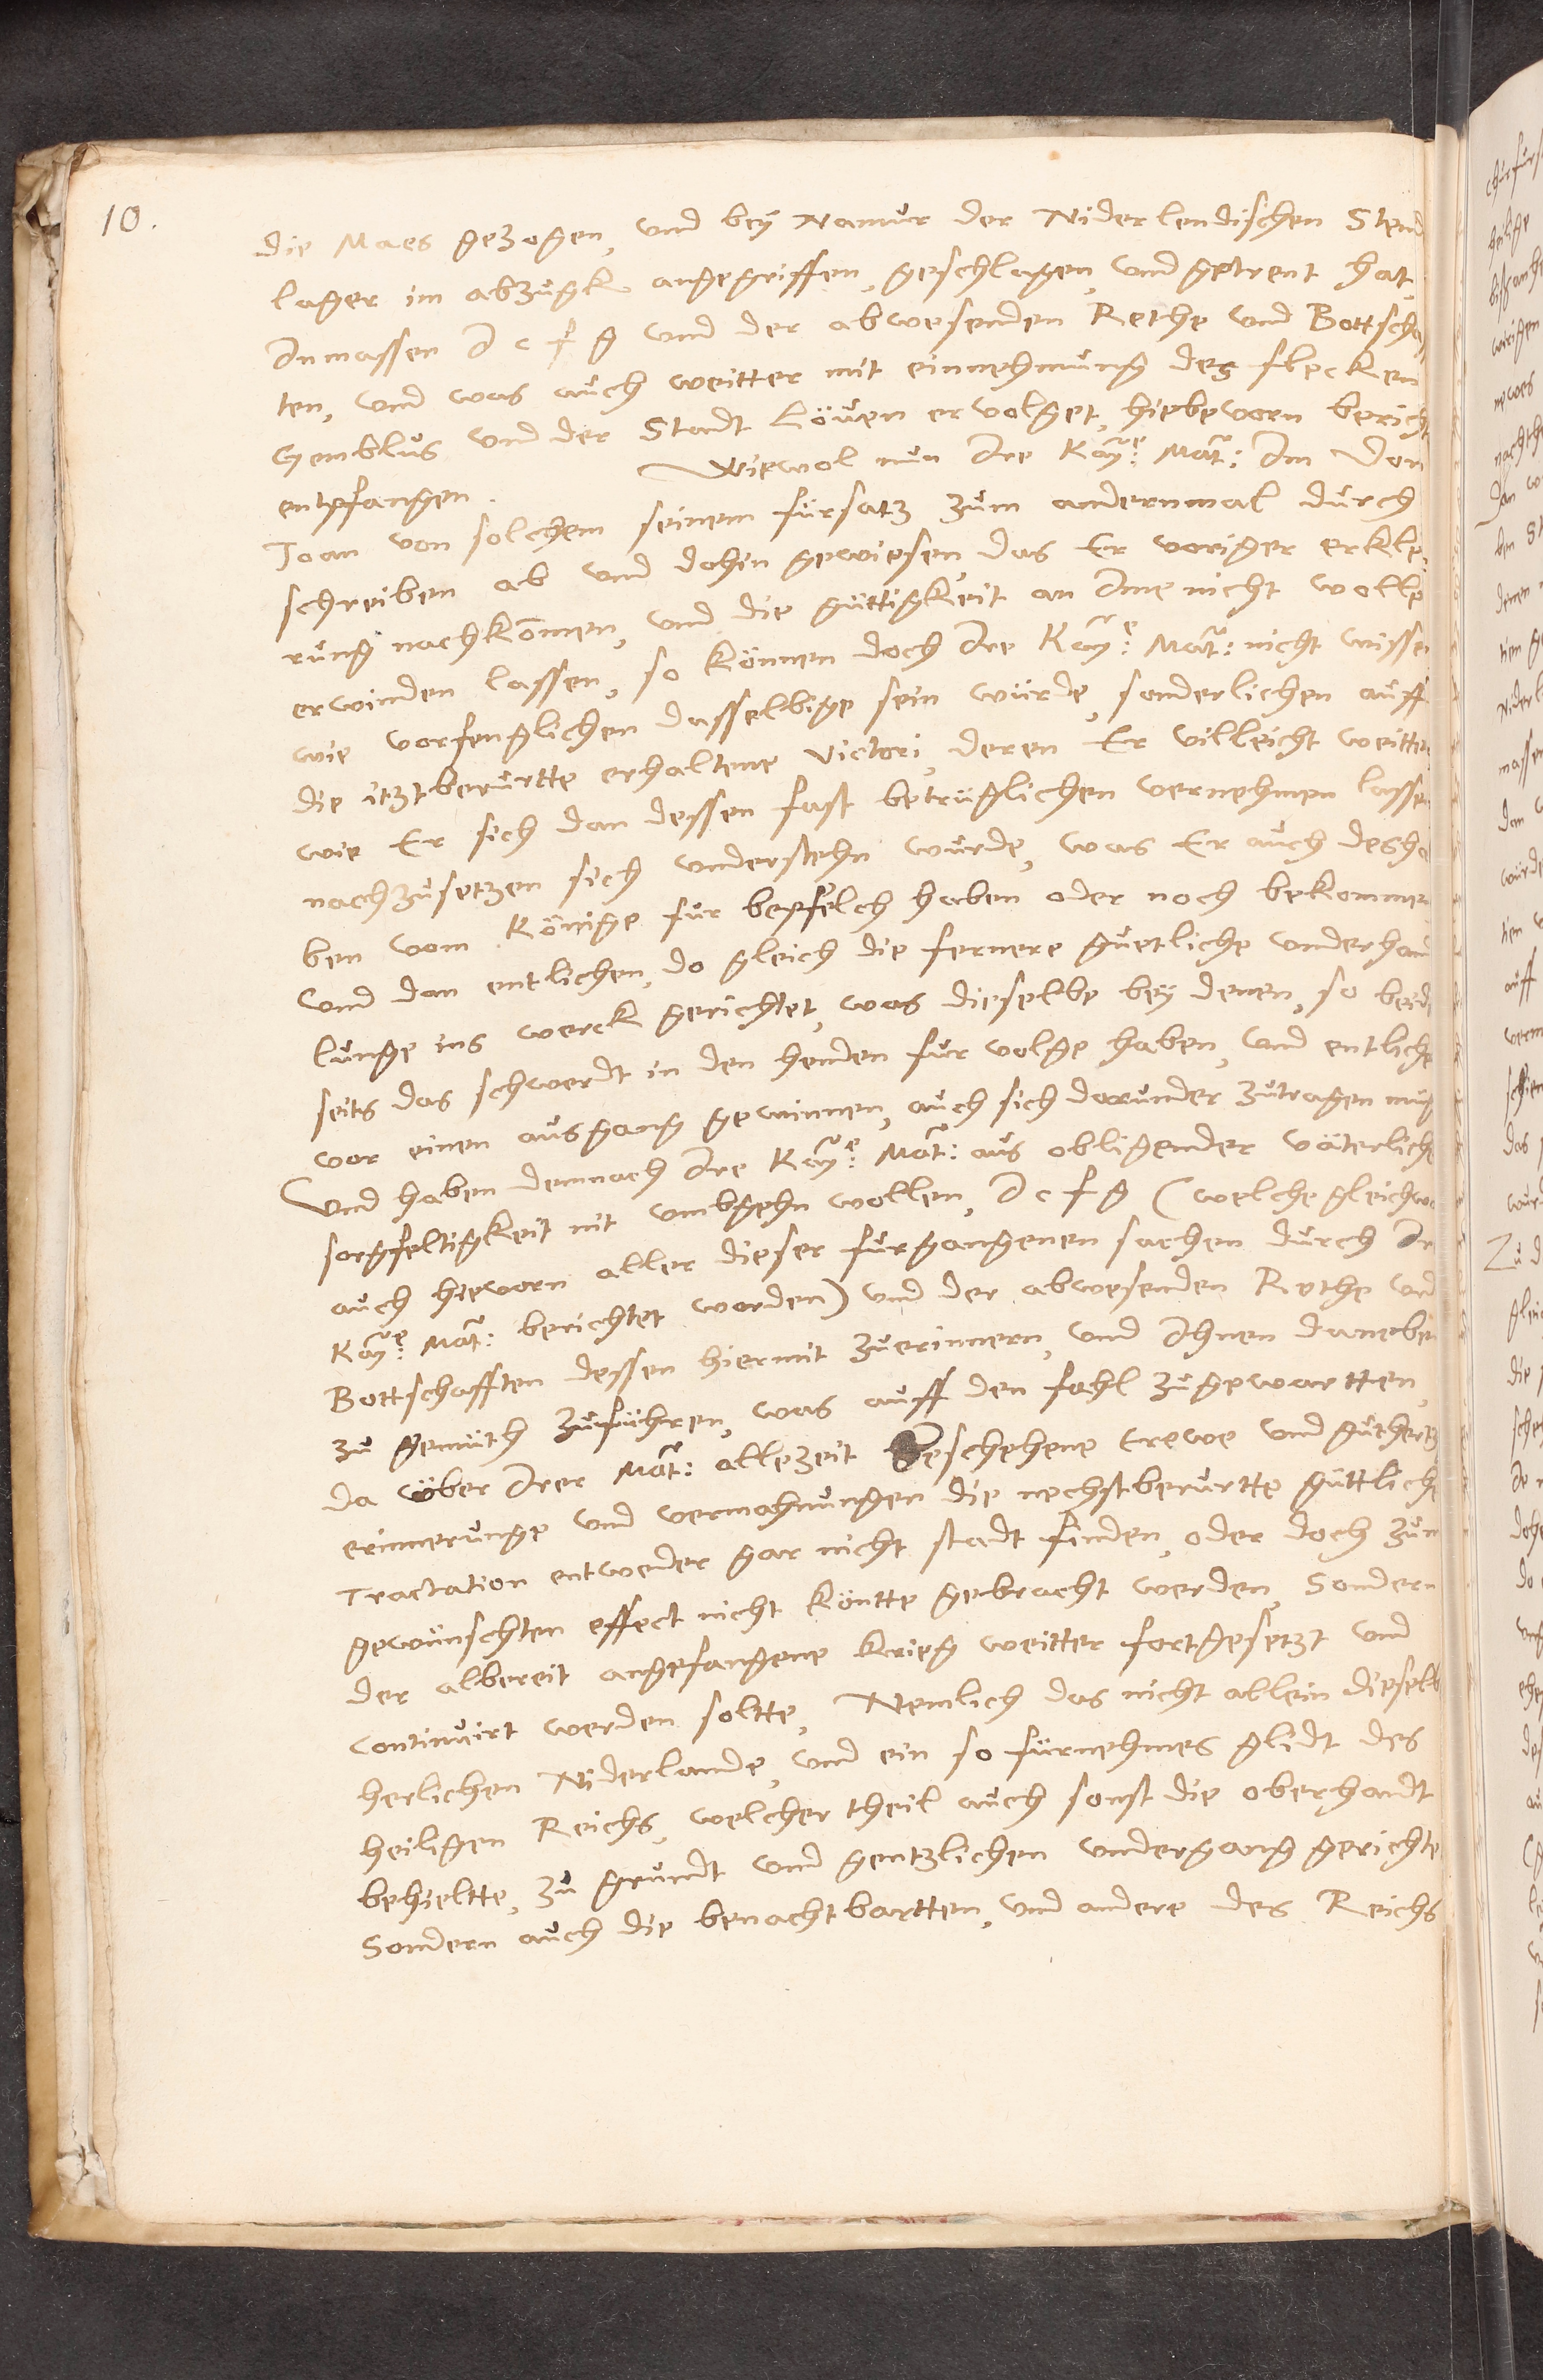 10.
die Maes gezogen, und bey Namur der Niderlendischen Stend
lager im abzugk angegriffen, geschlagen, und getrent hat,
Inmassen I c f g und der abwesenden Rethe und Bottschaf
ten, und was auch weitter mit einnehmung des flecken
Gemblus und der Stadt Löven ervolget, hiebevorn bericht
entpfangen. Wiewol nun Ire Kay:e Mat: Im Don
Joan von solchem seinem fürsatz zum andernmal durch
schreiben ab und dahin gewiesen, das Er voriger erkle-
rung nachkommen, und die güttigkeit an Ime nicht wolle
erwinden lassen, so können doch Ire Kay:e Mat: nicht wissen
wie vorfenglichen dasselbige sein würde, sonderlichen auff
die itztberurtte erhaltene Victori, deren Er villeicht weitter
wie Er sich dan dessen fast betrüglichen vernehmen lassen
nachzusetzen sich understehn wurde, was Er auch desha
ben vom Könige fur bepfelch haben oder noch bekommen
und dan entlichen, do gleich die fernere guetliche underhand
lunge ins werck gerichtet, was dieselbe bey denen, so beider
seits das schwerdt in den henden fur volge haben, und entliche
vor einen ausgang gewinnen, auch sich darunder zutragen müg
Und haben demnach Ire Kay:e Mat: aus obligender väterliche
sorgfeltigkeit nit umbgehn wollen, I c f g (welche gleichwo
auch hievorn aller dieser furgangenen sachen durch Ire
Kay:e Mat: berichtet worden) und der abwesenden Rethe und
Bottschafften dessen hiermit zuerinnern, und Ihnen daneben
zu gemüth zuführen, was auff den fahl zugewartten,
da über Irer Mat: allezeit Geschehene trewe und guthertz
erinnerunge und vermahnungen die nechstberurtte güttliche
Tractation entweder gar nicht stadt finden, oder doch zum
gewünschten effect nicht köntte gebracht werden, Sondern
der albereit angefangene krieg weitter fortgesetzt und
continuirt werden soltte, Nemlich das nicht allein dieselb
herlichen Niderlande, und ein so fürnehmes glidt des
heiligen Reichs, welcher theil auch sonst die oberhandt
behieltte, zu grundt und gentzlichen undergang gerichte
Sondern auch die benachtbartten, und andere des Reichs